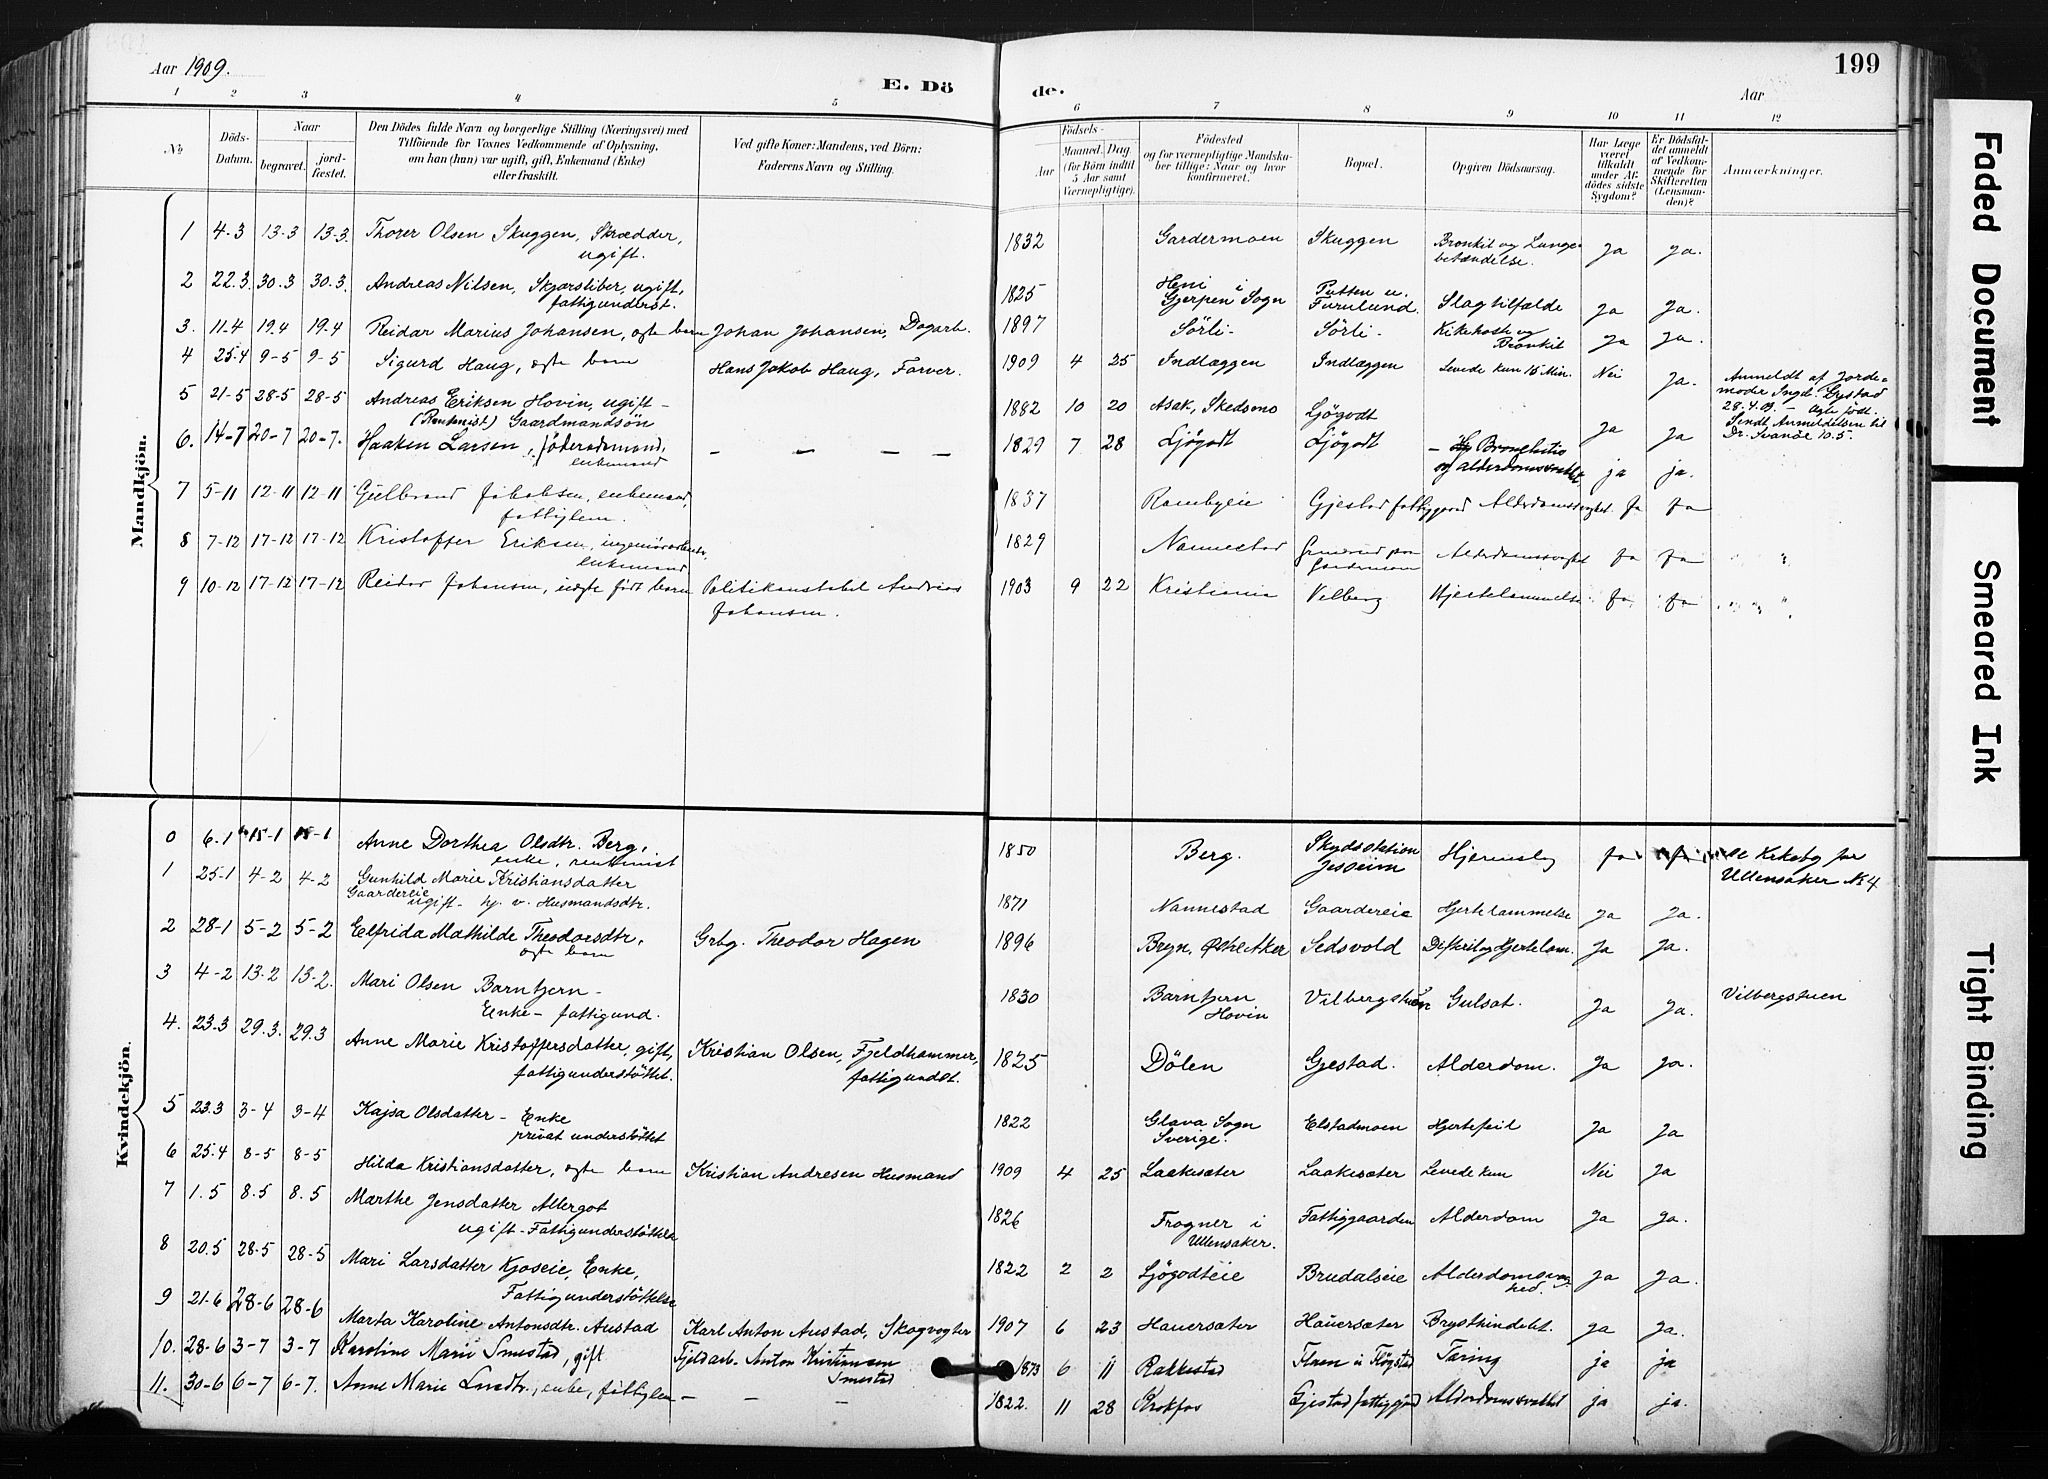 Aar 1909.
E. Dö
de.
Aar
199
1 2 3 4 5 6 7 8 9 10 11 12
No
Döds-Datum.
Naar
begravet.
jordfæstet.
Den Dödes fulde Navn og borgerlige Stilling (Næringsvei) med
Tilföiende for Voxnes Vedkommende af Oplysning,
om han (hun) var ugift, gift, Enkemand (Enke)
eller fraskilt.
Ved gifte Koner: Mandens, ved Börn:
Faderens Navn og Stilling.
Födsels-
Aar
Maaned. Dag
(for Börn indtil
5 Aar samt
Værnepligtige).
Födested
og for værnepligtige Mandska-
ber tillige: Naar og hvor
konfirmeret.
Bopæl.
Opgiven Dödsaarsag.
Har Læge
været
tilkaldt
under Af-
dödes sidste
Sygdom?
Er Dödsfal-
det anmeldt
af Vedkom-
mende for
Skifteretten
(Lensman-
den)?
Anmærkninger.
Mandkjön.
1 4.3 13-3 13-3. Thorer Olsen Skuggen, Skrædder, 1832 Gardermoen Skuggen Bronkit og Lunge-
ugift. betændelse. Ja Ja.
2 22.3. 30.3 30.3. Andreas Nilsen, Skjærsliber, ugift, 1825 Heni i Putten u.
fattigunderst. Gjerpen Sogn Furulund. Slagtilfælde Ja Ja.
3. 11.4 19.4 19.4 Reidar Marius Johansen, ægte barn Johan Johansen, Dagarb. 1897 Sörli- Sörli- Kikhoste og
Bronkit Ja Ja.
4 25.4 9-5 9-5 Sigurd Haug, ægte barn Hans Jakob Haug, Farver. 1909 4 25 Indlæggen Indlæggen Levede kun 15 Min. Nei Ja. Anmeldt af Jorde-
moder Ingb. Gystad
28.4.09. — Ægte født.
Sendt Anmeldelsen til
Dr. Svanøe 10.5.
5 21-5 28-5 28-5 Andreas Eriksen Hovin, ugift- 1882 10 20 Asak, Skedsmo Ljögodt Ja Ja
(Rentenist) Gaardmandsön
6. 14-7 20-7 20-7. Haaken Larsen, föderadsmand, — — — — 1829 7 28 Ljögodt Ljögodt — Bronchitis
enkemand og alderdomssvakhet ja ja.
7 5-11 12-11 12-11 Gulbrand Jakobsen, enkemand, 1837 Rambyeie Gjestad fattiggaard Alderdomssvaghet. Ja Ja
fattiglem.
8 7-12 17-12 17-12 Kristoffer Eriksen, 1829 Nannestad Alderdomssvaghet Ja Ja
enkemand
9 10-12 17-12 17-12 Reidar Johansen, uægte født barn Politikonstabel Andreas 1903 9 22 Kristiania Vilberg Hjertelammelse Ja. Ja
Johansen.
Kvindekjön.
0 6.1 15-1 15-1 Anne Dorthea Olsdtr. Berg, 1850 Berg. Skydsstation Hjernesly Ja
enke, rentenist Jessheim
Kirkeby for
Ullensaker No 4
1 25-1 4-2 4-2 Gunhild Marie Kristiansdatter 1871 Nannestad Gaardereie Hjertelammelse Ja Ja.
Gaardereie
ugift- hj. v. Husmandsdtr.
2 28-1 5-2 5-2 Elfrida Mathilde Theodorsdtr, Grbg. Theodor Hagen 1896 Bryn, Östre Aker Sedsvold Difterit og Hjertelam. Ja Ja.
ægte barn
3 4-2 13-2 13-2. Mari Olsen Barntjern- 1830 Barntjern Vilbergstuen Gulsot. Ja Ja. Vilbergstuen
Enke- fattigund. Hovin
4. 23.3 29.3. 29.3 Anne Marie Kristoffersdatter, gift, Kristian Olsen, Fjeldhammer, 1825 Dölen Gjestad. Alderdom. Ja Ja.
fattigunderstöttet. fattigundst.
5 23.3 3-4 3-4 Kajsa Olsdatter- Enke 1822 Glava Sogn Elstadmoen Hjertefeil Ja Ja
privat understöttet Sverige.
6 25.4 8-5 8-5 Hilda Kristiansdatter, ægte barn Kristian Andresen Husmand 1909 4 25 Laakesæter Laakesæter Levede kun Nei Ja
7 1.5 8.5 8.5 Marthe Jensdatter Allergot 1826 Frogner i Fattiggaarden Alderdom Ja Ja.
ugift- Fattigunderstöttelse Ullensaker.
8 20.5 28-5 28-5 Mari Larsdatter Kjoseie, Enke, 1822 2 2 Ljögodteie Brudalseie Alderdomsvag-
hed. Ja Ja.
Fattigunderstöttelse
9 21-6 28-6 28-6 Marta Karoline Antonsdtr. Austad Karl Anton Austad, Skogvogter 1907 6 23 Hauersæter Hauersæter Brysthindebt. Ja Ja.
10. 28-6 3-7 3-7 Karoline Marie Smestad, gift Fjeldarb. Anton Kristiansen 1873 6 11 Rakkestad Tæring ja ja
Smestad
11. 30-6 6-7 6-7. Anne Marie, enke, fattiglem — — — 1822. 11 28 Krokfos Gjestad fattiggård Alderdomssvakhet ja ja.
Faded Document
Smeared Ink
Tight Binding